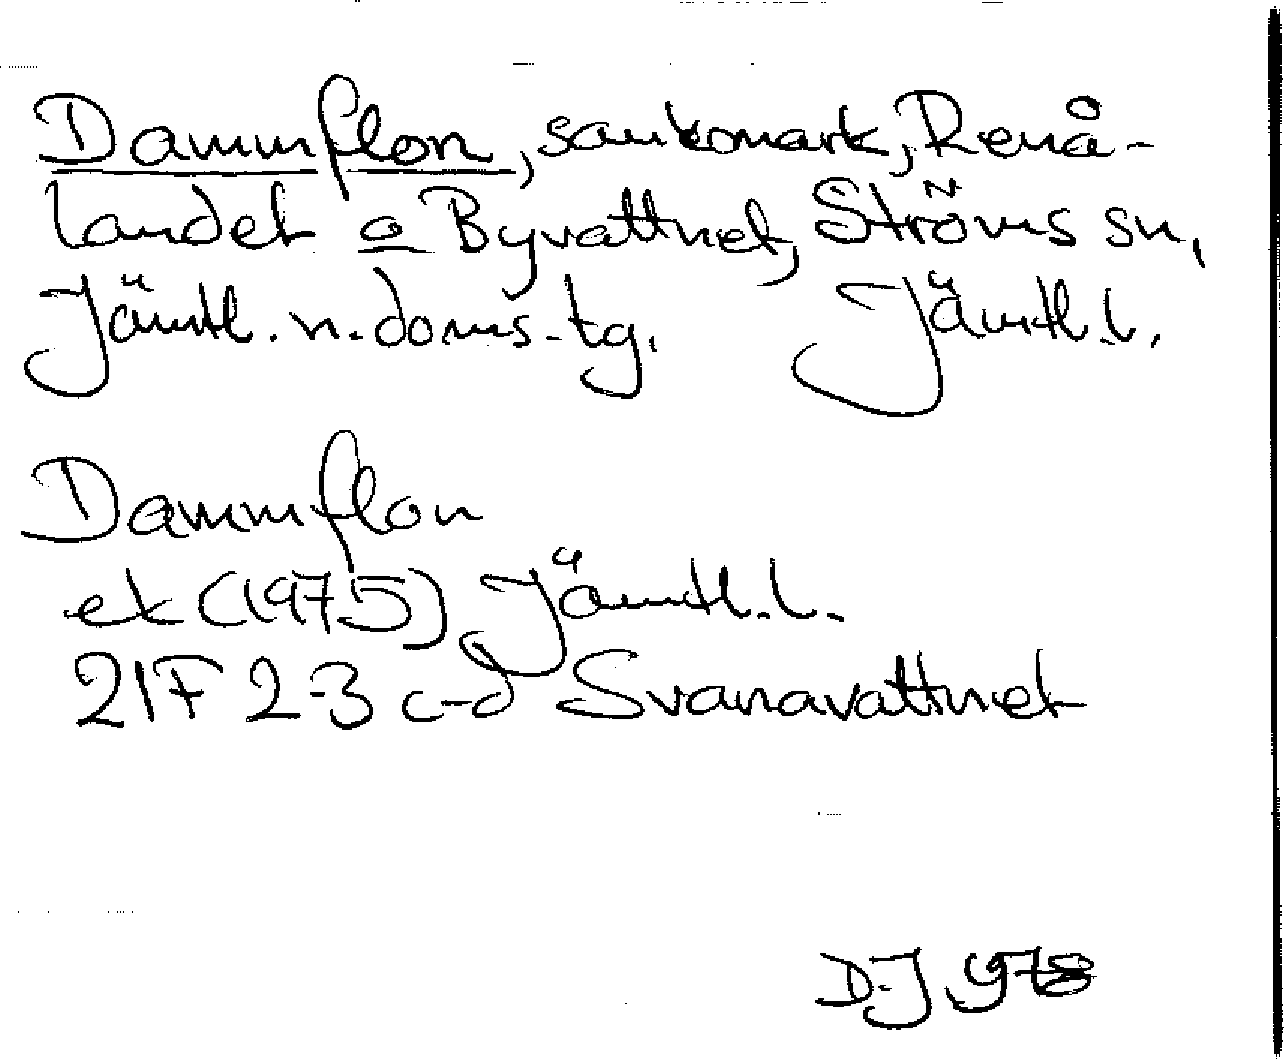 Dammflon, sankmark, Renå-
landet o Byvattnet, Ströms sn,
Jämtl. n. doms. tg. Jämtl. l.
Dammflon
ek (1975) Jämtl. l.
21F 2-3 c-d Svanavattnet
D-J 1978